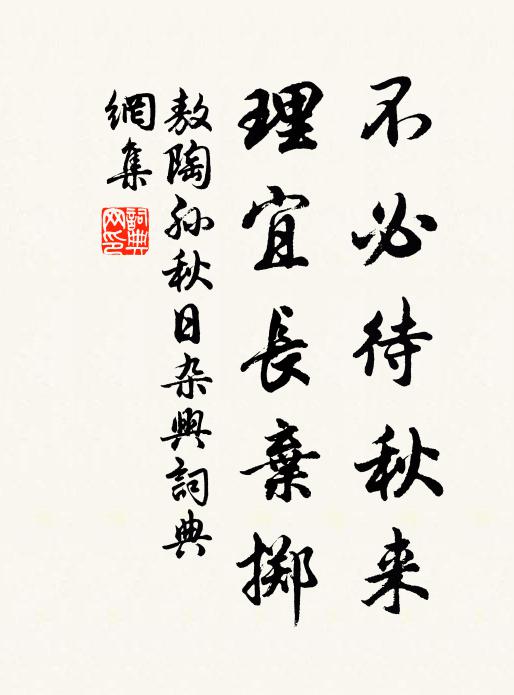 不必待秋来
理宜長棄掷
敖陶孙秋日杂興詞典
網集
詞典網印